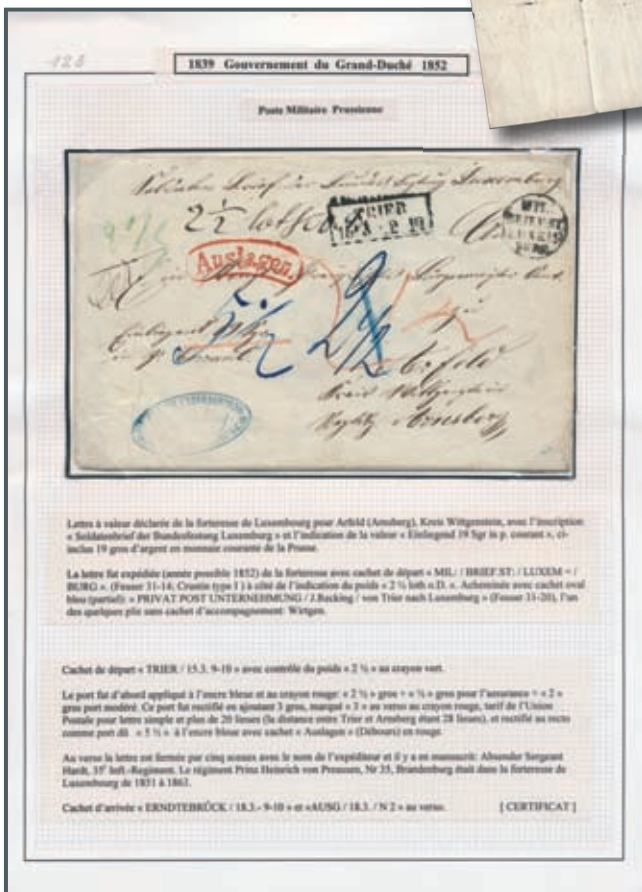 123
1839 Gouvernement du Grand-Duché 1852
Poste Militaire Prussienne
2½ loth
TRIER
Auslagen.
5½ 2½
Arnsberg
Lettre à valeur déclarée de la forteresse de Luxembourg pour Arfeld (Arnsberg), Kreis Wittgenstein, avec l'inscription
« Soldatenbrief der Bundesfestung Luxemburg » et l'indication de la valeur « Einliegend 19 Sgr in p. courant », ci-
inclus 19 gros d'argent en monnaie courante de la Prusse.
La lettre fut expédiée (année possible 1852) de la forteresse avec cachet de départ « MIL: / BRIEF.ST: / LUXEM = /
BURG ». (Feuser 31-14; Crustin type I ) à côté de l'indication du poids « 2 ½ loth o.D. ». Acheminée avec cachet oval
bleu (partiel): « PRIVAT POST UNTERNEHMUNG / J.Recking / von Trier nach Luxemburg » (Feuser 31-20), l'un
des quelques plis sans cachet d'accompagnement: Wirtgen.
Cachet de départ « TRIER / 15.3. 9-10 » avec contrôle du poids « 2 ½ » au crayon vert.
Le port fut d'abord appliqué à l'encre bleue et au crayon rouge: « 2 ½ » gros + « ½ » gros pour l'assurance + « 2 »
gros port modéré. Ce port fut rectifié en ajoutant 3 gros, marqué « 3 » au verso au crayon rouge, tarif de l'Union
Postale pour lettre simple et plus de 20 lieues (la distance entre Trier et Arnsberg étant 28 lieues), et rectifié au recto
comme port dû « 5 ½ » à l'encre bleue avec cachet « Auslagen » (Débours) en rouge.
Au verso la lettre est fermée par cinq sceaux avec le nom de l'expéditeur et il y a en manuscrit: Absender Sergeant
Hardt, 35' Inft.-Regiment. Le régiment Prinz Heinrich von Preussen, Nr 35, Brandenburg était dans la forteresse de
Luxembourg de 1851 à 1861.
Cachet d'arrivée « ERNDTEBRÜCK / 18.3.- 9-10 » et «AUSG / 18.3. / N 2 » au verso. [ CERTIFICAT ]